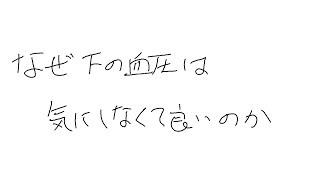 なぜ下の血圧は
気にしなくて良いのか